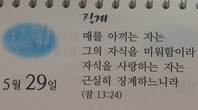 징계
매를 아끼는 자는
그의 자식을 미워함이라
자식을 사랑하는 자는
근실히 징계하느니라
(잠 13:24)
5월 29일